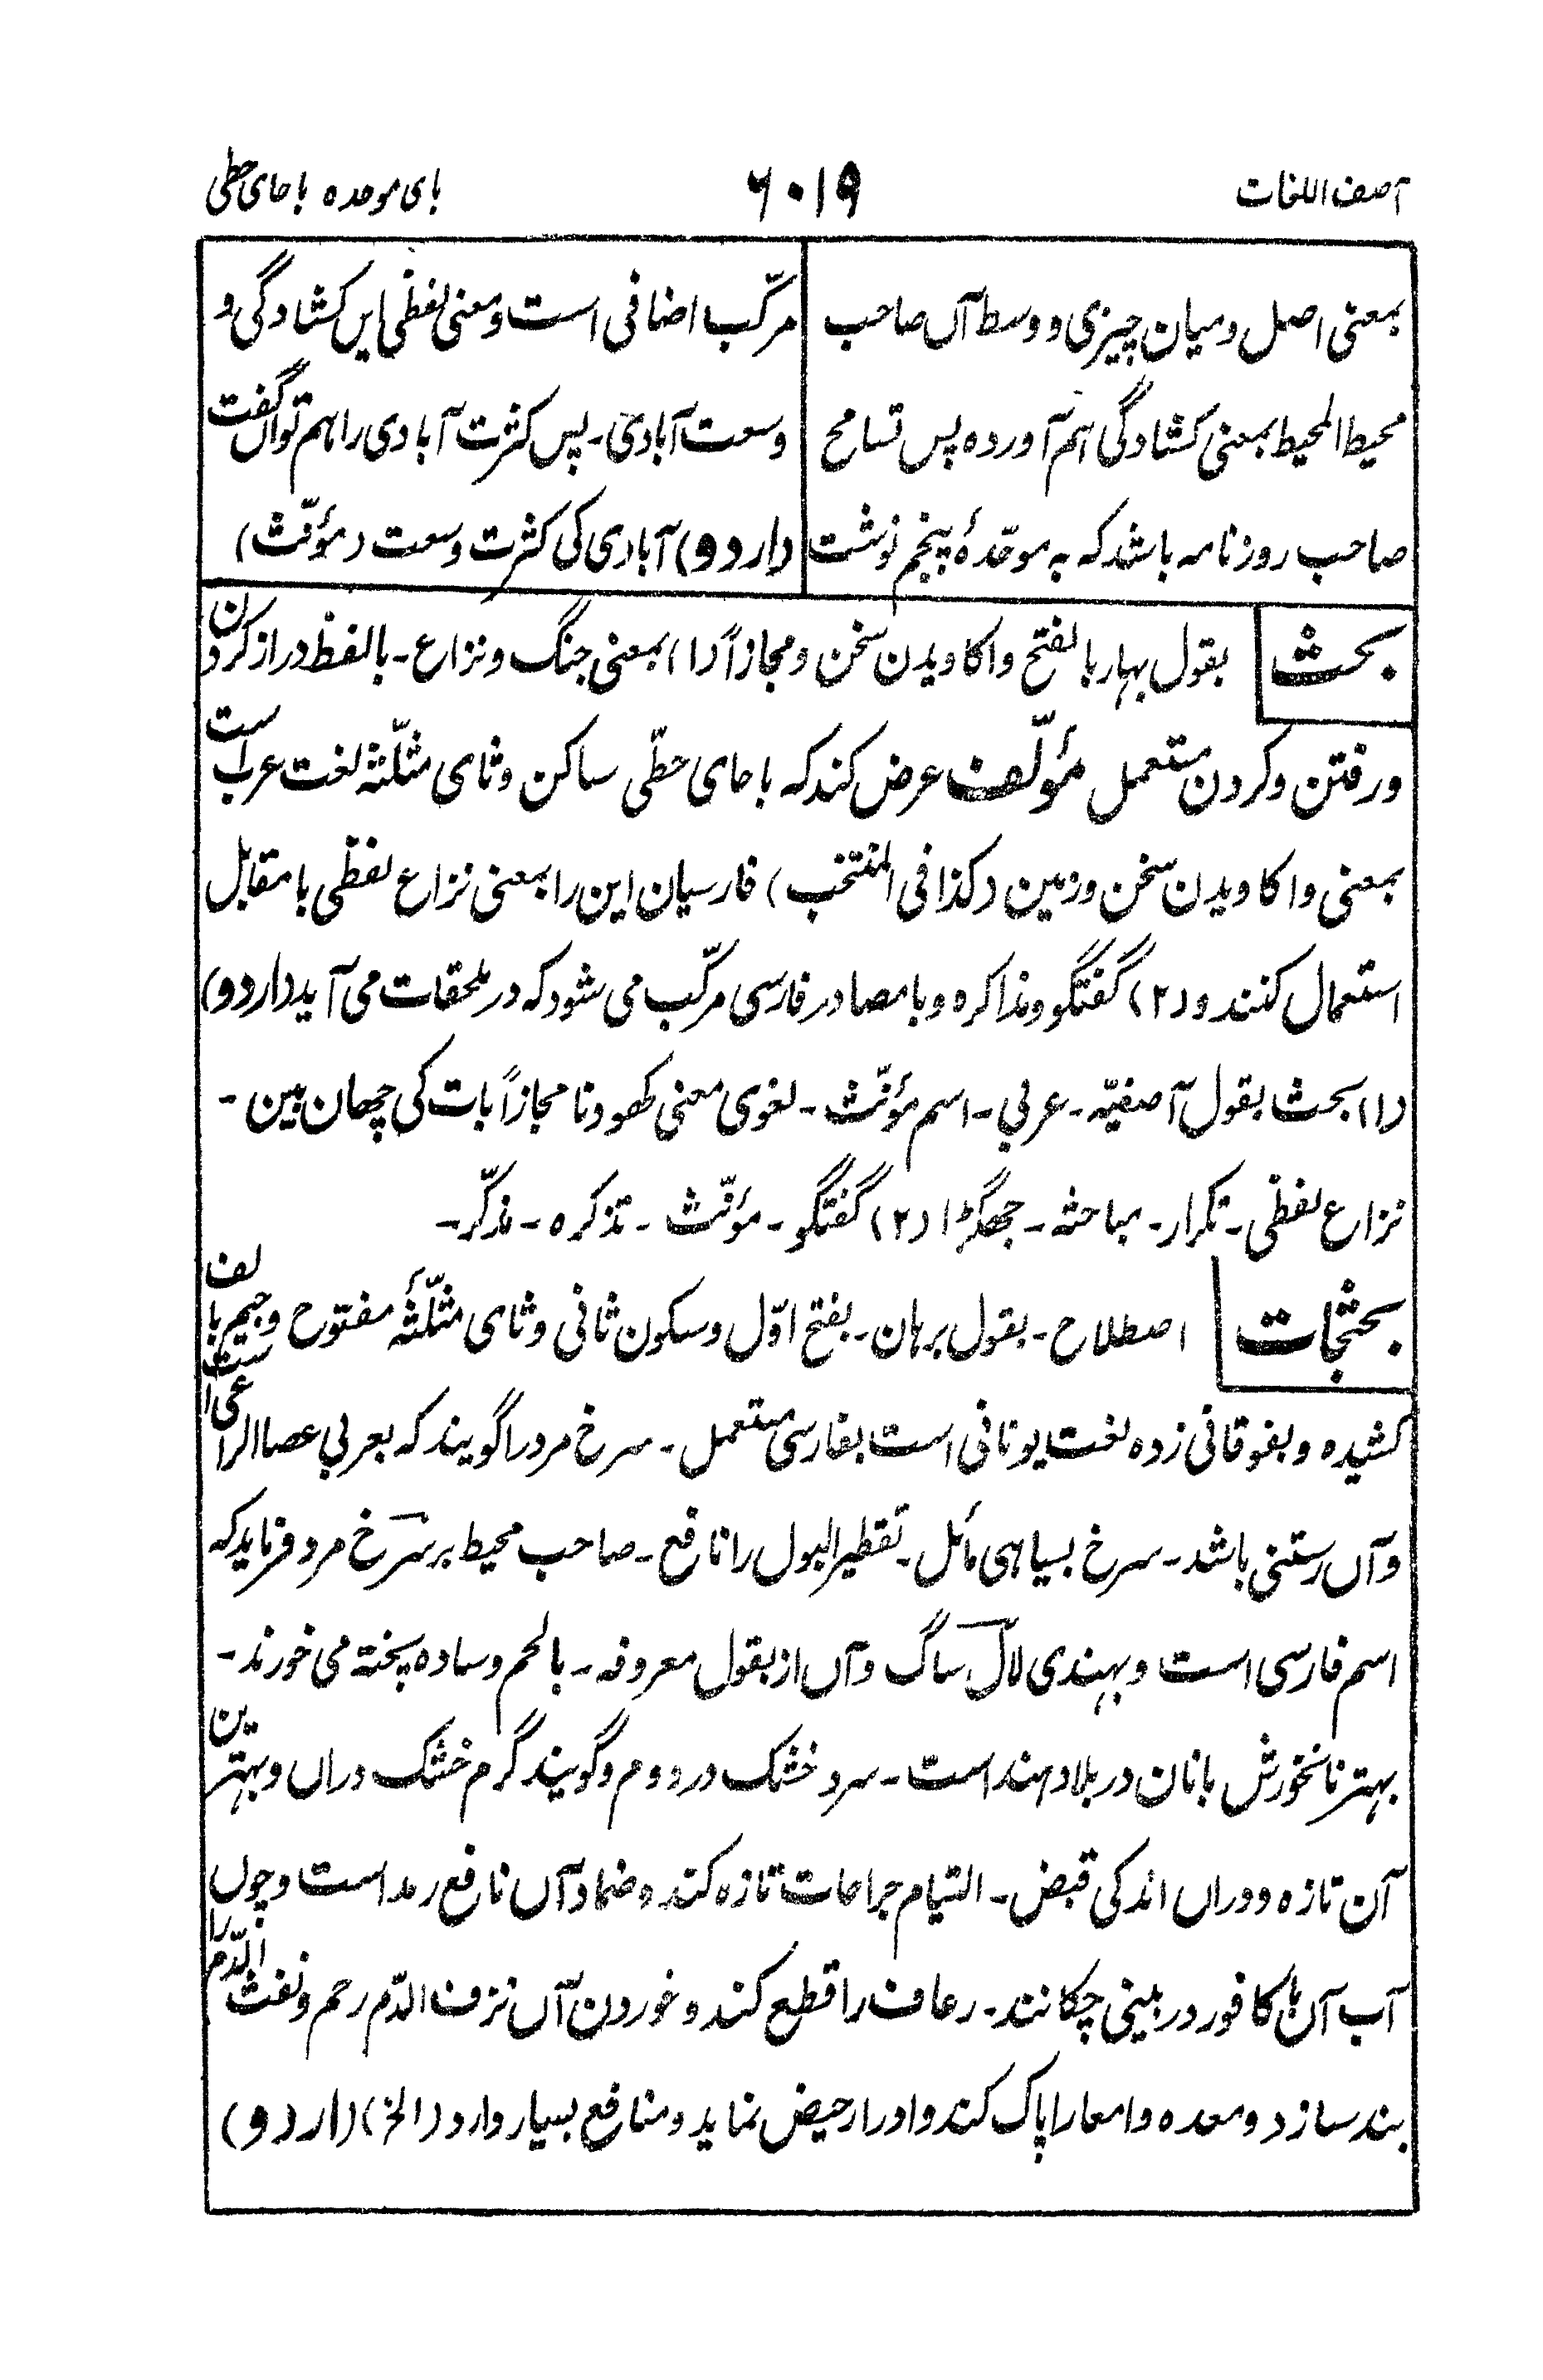 آصف اللغات
۶۰۱۹
بای موحده باحای حطی
بمعنی اصل و میان چیزی و وسط آں صاحب
محیط المحیط بمعنی کشادگی ہم آورده پس تسامح
صاحب روزنامه باشد که به موحّدهٔ پنجم نوشت
مرکّب اضافی است و معنی لفظی ایں کشادگی و
وسعت آبادی۔ پس کثرت آبادی را ہم تواں گفت
(اردو) آبادی کی کثرت وسعت (مؤنّث)
بحث
بقول بہار بالفتح واکاویدن سخن و مجازاً (۱) بمعنی جنگ و نزاع۔ بالفظ دراز کردن
و رفتن و کردن مستعمل مؤلّف عرض کند که باحای حطّی ساکن و ثای مثلّثه لغت عرب است
بمعنی واکاویدن سخن و زمین (کذا فی المنتخب) فارسیان این را بمعنی نزاع لفظی با مقابل
استعمال کنند و (۲) گفتگو و مذاکره و با مصادر فارسی مرکّب می شود که در ملحقات می آید (اردو)
(۱) بحث بقول آصفیّه۔ عربی۔ اسم مؤنّث۔ لغوی معنی کھودنا مجازاً بات کی چھان بین۔
نزاع لفظی۔ تکرار۔ مباحثه۔ جھگڑا (۲) گفتگو۔ مؤنّث۔ تذکره۔ مذکّر۔
بحثجات
اصطلاح۔ بقول برہان۔ بفتح اوّل و سکون ثانی و ثای مثلّثۂ مفتوح و جیم بالف
کشیده و بفوقانی زده لغت یونانی است بفارسی مستعمل۔ سرخ مرد را گویند که بعربی عصا الراعی است
و آں رستنی باشد۔ سرخ بسیاہی مائل۔ تقطیر البول را نافع۔ صاحب محیط بر سرخ مرد فرماید که
اسم فارسی است و بہندی لال ساگ و آں از بقول معروفه۔ بالحم و ساده پخته می خورند۔
بہتر نانخورش بانان در بلاد ہند است۔ سرد خشک در دوم و گویند گرم خشک دراں و بہترین
آن تازه و دراں اندکی قبض۔ التیام جراحات تازه کند و ضماد آں نافع رمد است و چوں
آب آں با کافور در بینی چکانند۔ رعاف را قطع کند و خوردن آں نزف الدّم رحم و نفث الدّم را
بند سازد و معده و امعا را پاک کند و ادرار حیض نماید و منافع بسیار دارد (الخ) (اردو)